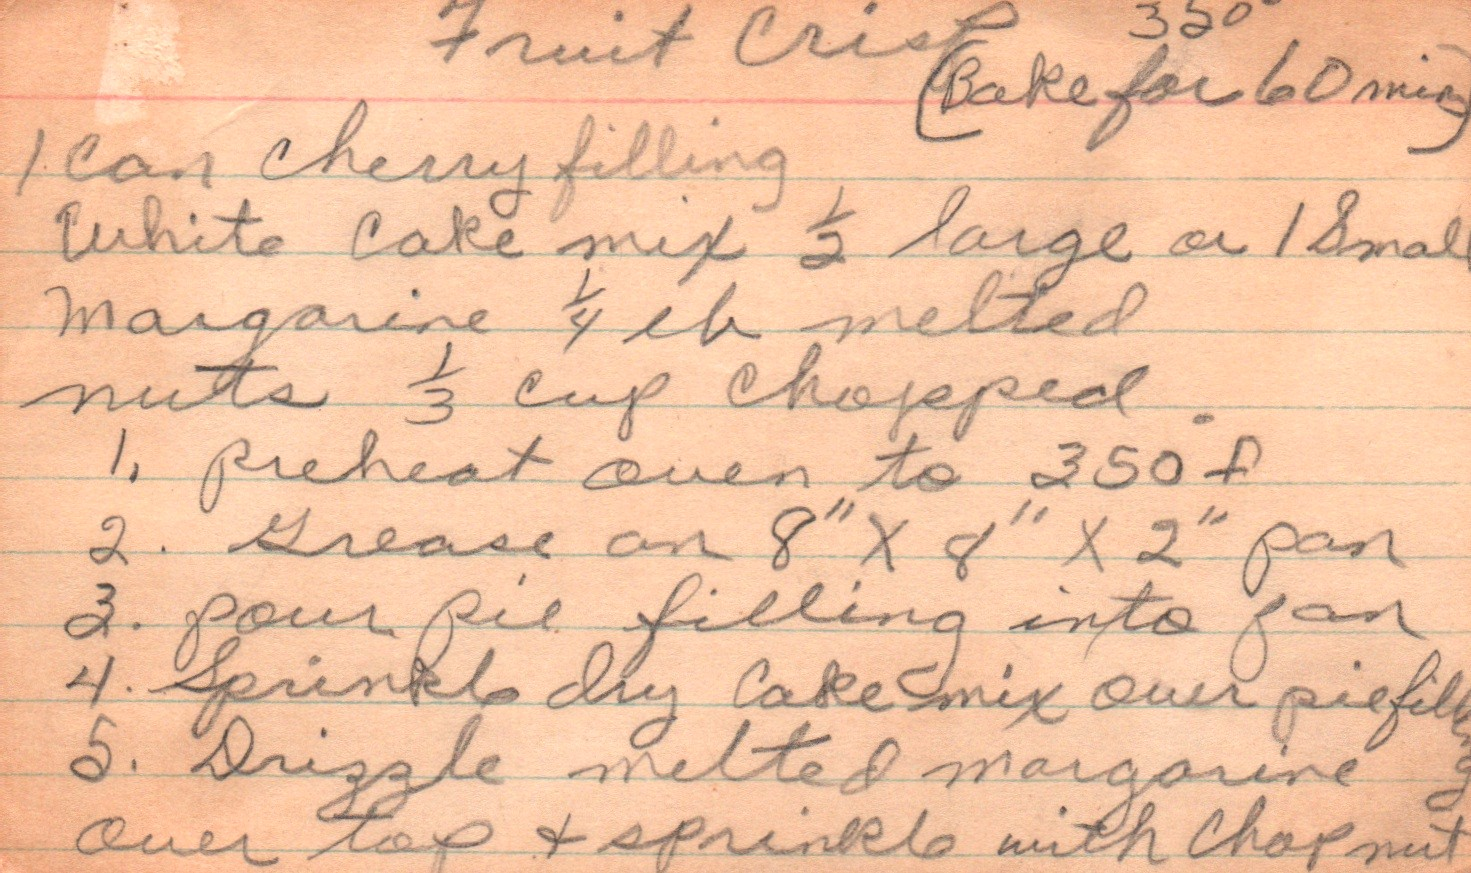 Fruit Crisp 350°
(Bake for 60 min)
1 can cherry filling
White Cake mix 1/2 large or 1 Small
Margarine 1/4 lb melted
nuts 1/3 cup chopped.
1. preheat oven to 350° f
2. Grease an 8" X 8" X 2" pan
3. pour pie filling into pan
4. Sprinkle dry cake mix over pie filling
5. Drizzle melted margarine
over top + sprinkle with Chop nut